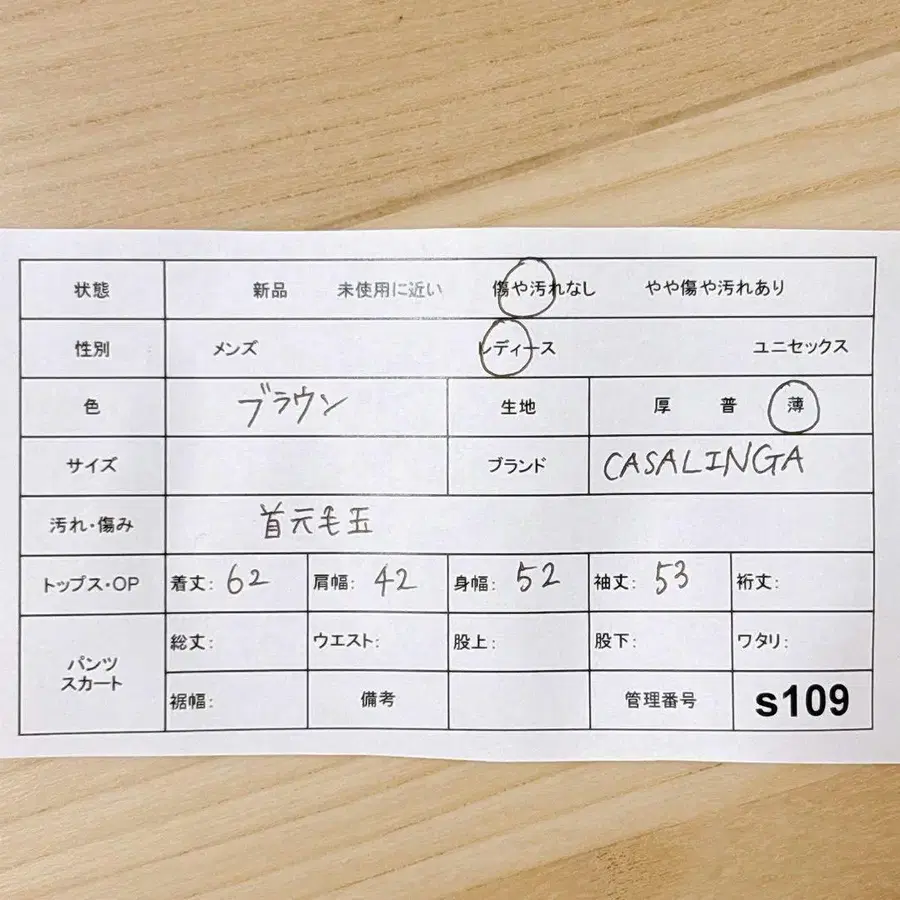 状態 新品 未使用に近い 傷や汚れなし やや傷や汚れあり
性別 メンズ レディース ユニセックス
色 ブラウン 生地 厚 普 薄
サイズ ブランド CASALINGA
汚れ・傷み 首元毛玉
トップス・OP 着丈: 62 肩幅: 42 身幅: 52 袖丈: 53 裄丈:
パンツ
スカート
総丈: ウエスト: 股上: 股下: ワタリ:
裾幅: 備考 管理番号 s109